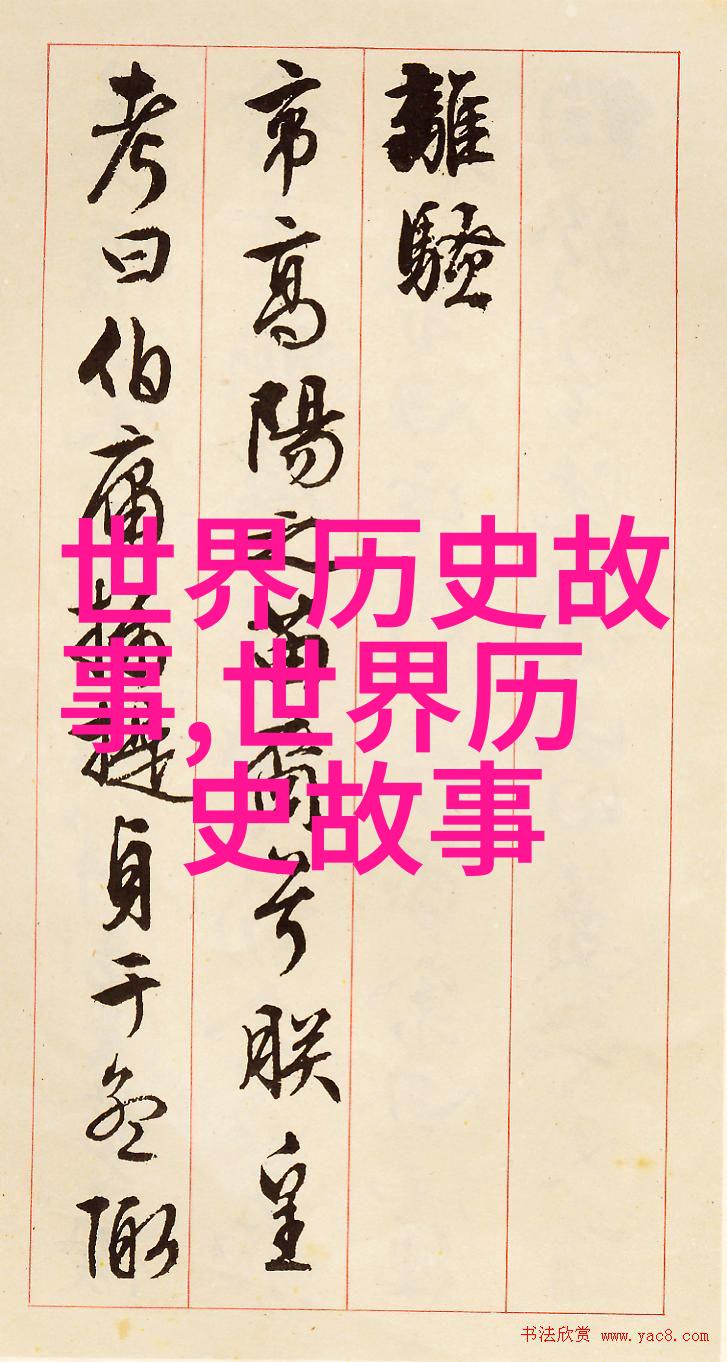 離騷
帝高陽之苗裔兮朕皇
考曰伯庸攝提貞于孟陬
世界历史故
事,世界历
史故事
书法欣赏 www.yac8.com